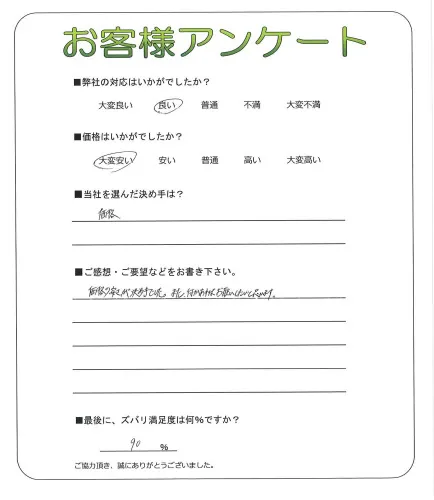 お客様アンケート
■弊社の対応はいかがでしたか？
大変良い 良い 普通 不満 大変不満
■価格はいかがでしたか？
大変安い 安い 普通 高い 大変高い
■当社を選んだ決め手は？
価格
■ご感想・ご要望などをお書き下さい。
価格の安さが決め手でした。また、何かあればお願いしたいと思います。
■最後に、ズバリ満足度は何％ですか？
90 ％
ご協力頂き、誠にありがとうございました。